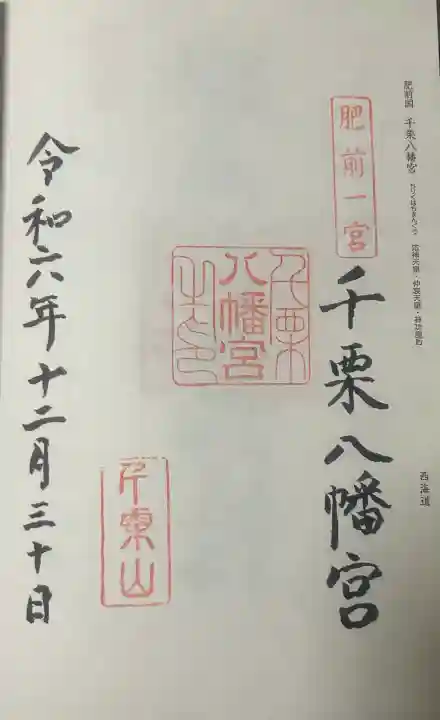 肥前国 千栗八幡宮 ちりくはちまんぐう 応神天皇・仲哀天皇・神功皇后
西海道
肥前一宮
千栗八幡宮
千栗
八幡宮
之印
千栗山
令和六年十二月三十日